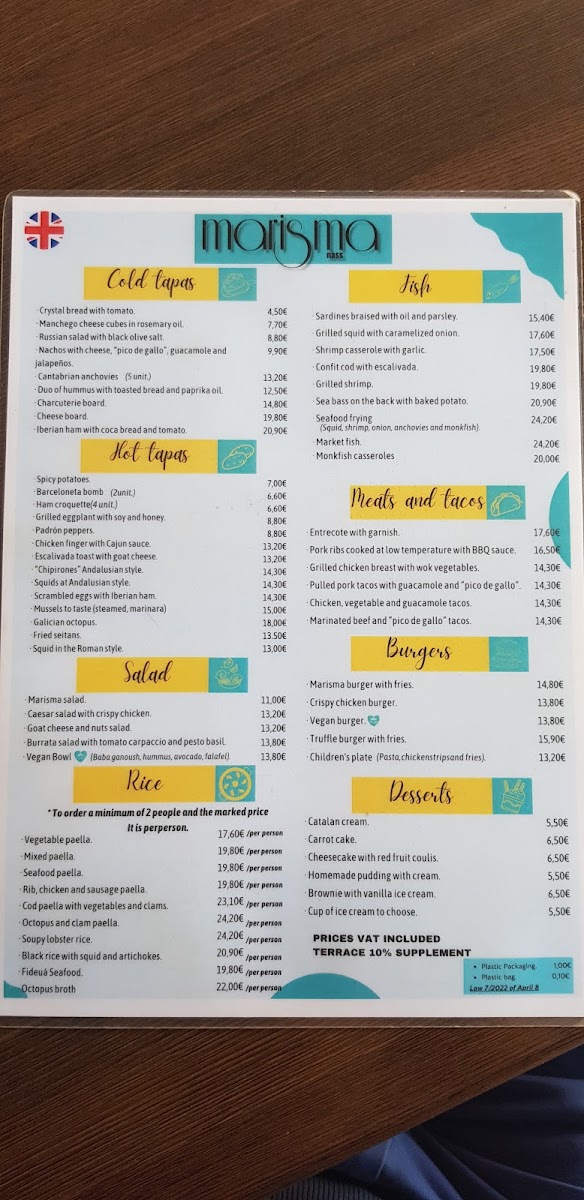 marisma
nass
Cold tapas
· Crystal bread with tomato. 4,50€
· Manchego cheese cubes in rosemary oil. 7,70€
· Russian salad with black olive salt. 8,80€
· Nachos with cheese, "pico de gallo", guacamole and 9,90€
jalapeños.
· Cantabrian anchovies (5 unit.) 13,20€
· Duo of hummus with toasted bread and paprika oil. 12,50€
· Charcuterie board. 14,80€
· Cheese board. 19,80€
· Iberian ham with coca bread and tomato. 20,90€
Hot tapas
· Spicy potatoes. 7,00€
· Barceloneta bomb (2unit.) 6,60€
· Ham croquette(4 unit.) 6,60€
· Grilled eggplant with soy and honey. 8,80€
· Padrón peppers. 8,80€
· Chicken finger with Cajun sauce. 13,20€
· Escalivada toast with goat cheese. 13,20€
· "Chipirones" Andalusian style. 14,30€
· Squids at Andalusian style. 14,30€
· Scrambled eggs with Iberian ham. 14,30€
· Mussels to taste (steamed, marinara) 15,00€
· Galician octopus. 18,00€
· Fried seitans. 13.50€
· Squid in the Roman style. 13,00€
Salad
· Marisma salad. 11,00€
· Caesar salad with crispy chicken. 13,20€
· Goat cheese and nuts salad. 13,20€
· Burrata salad with tomato carpaccio and pesto basil. 13,80€
· Vegan Bowl (Baba ganoush, hummus, avocado, falafel). 13,80€
Rice
* To order a minimum of 2 people and the marked price
It is perperson.
· Vegetable paella. 17,60€ /per person
· Mixed paella. 19,80€ /per person
· Seafood paella. 19,80€ /per person
· Rib, chicken and sausage paella. 19,80€ /per person
· Cod paella with vegetables and clams. 23,10€ /per person
· Octopus and clam paella. 24,20€ /per person
· Soupy lobster rice. 24,20€ /per person
· Black rice with squid and artichokes. 20,90€ /per person
· Fideuá Seafood. 19,80€ /per person
· Octopus broth 22,00€ /per person
Fish
· Sardines braised with oil and parsley. 15,40€
· Grilled squid with caramelized onion. 17,60€
· Shrimp casserole with garlic. 17,50€
· Confit cod with escalivada. 19,80€
· Grilled shrimp. 19,80€
· Sea bass on the back with baked potato. 20,90€
· Seafood frying 24,20€
(Squid, shrimp, onion, anchovies and monkfish).
· Market fish. 24,20€
· Monkfish casseroles 20,00€
Meats and tacos
· Entrecote with garnish. 17,60€
· Pork ribs cooked at low temperature with BBQ sauce. 16,50€
· Grilled chicken breast with wok vegetables. 14,30€
· Pulled pork tacos with guacamole and "pico de gallo". 14,30€
· Chicken, vegetable and guacamole tacos. 14,30€
· Marinated beef and "pico de gallo" tacos. 14,30€
Burgers
· Marisma burger with fries. 14,80€
· Crispy chicken burger. 13,80€
· Vegan burger. 13,80€
· Truffle burger with fries. 15,90€
· Children's plate (Pasta,chickenstripsand fries). 13,20€
Desserts
· Catalan cream. 5,50€
· Carrot cake. 6,50€
· Cheesecake with red fruit coulis. 6,50€
· Homemade pudding with cream. 5,50€
· Brownie with vanilla ice cream. 6,50€
· Cup of ice cream to choose. 5,50€
PRICES VAT INCLUDED
TERRACE 10% SUPPLEMENT
• Plastic Packaging. 1,00€
• Plastic bag. 0,10€
Law 7/2022 of April 8